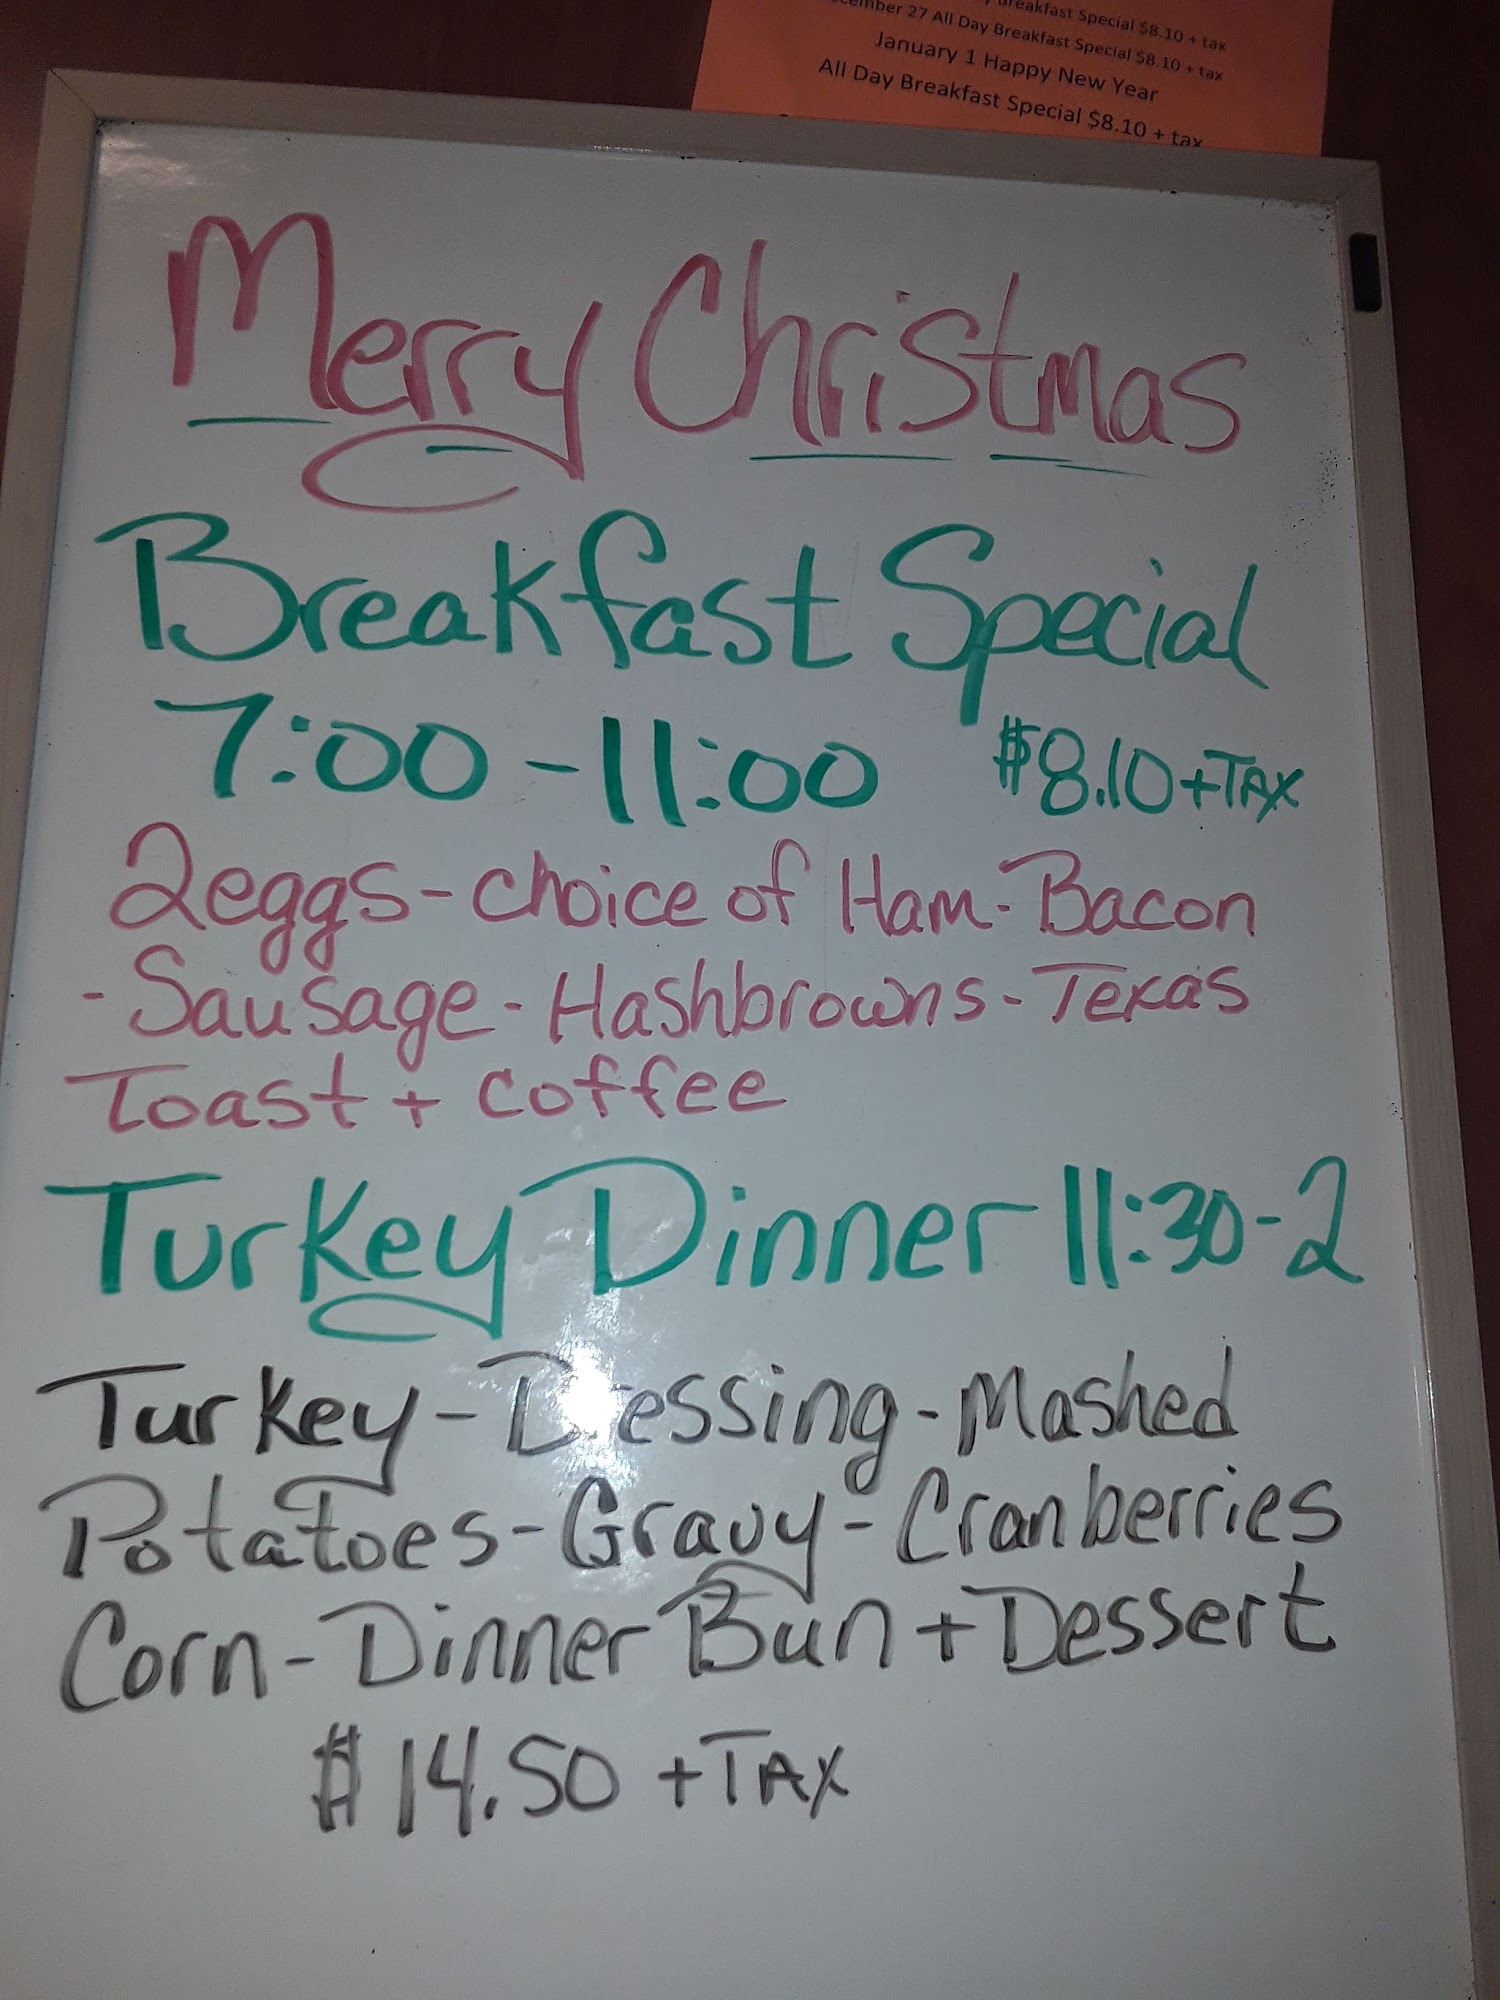 Breakfast Special $8.10 + tax
27 All Day Breakfast Special $8.10 + tax
January 1 Happy New Year
All Day Breakfast Special $8.10 + tax
Merry Christmas
Breakfast Special
7:00 - 11:00 $8.10 + TAX
2 eggs - choice of Ham - Bacon
- Sausage - Hashbrowns - Texas
Toast + coffee
Turkey Dinner 11:30 - 2
Turkey - Dressing - Mashed
Potatoes - Gravy - Cranberries
Corn - Dinner Bun + Dessert
$14.50 + TAX